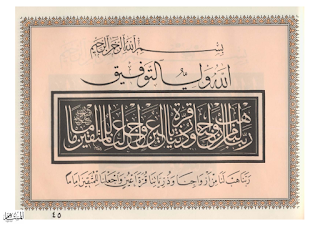 بسم الله الرحمن الرحيم
الله ولي التوفيق
ربنا هب لنا من أزواجنا وذرياتنا قرة أعين واجعلنا للمتقين إماما
رَبَّنَا هَبْ لَنَا مِنْ أَزْوَاجِنَا وَذُرِّيَّاتِنَا قُرَّةَ أَعْيُنٍ وَاجْعَلْنَا لِلْمُتَّقِينَ إِمَامًا
٤٥